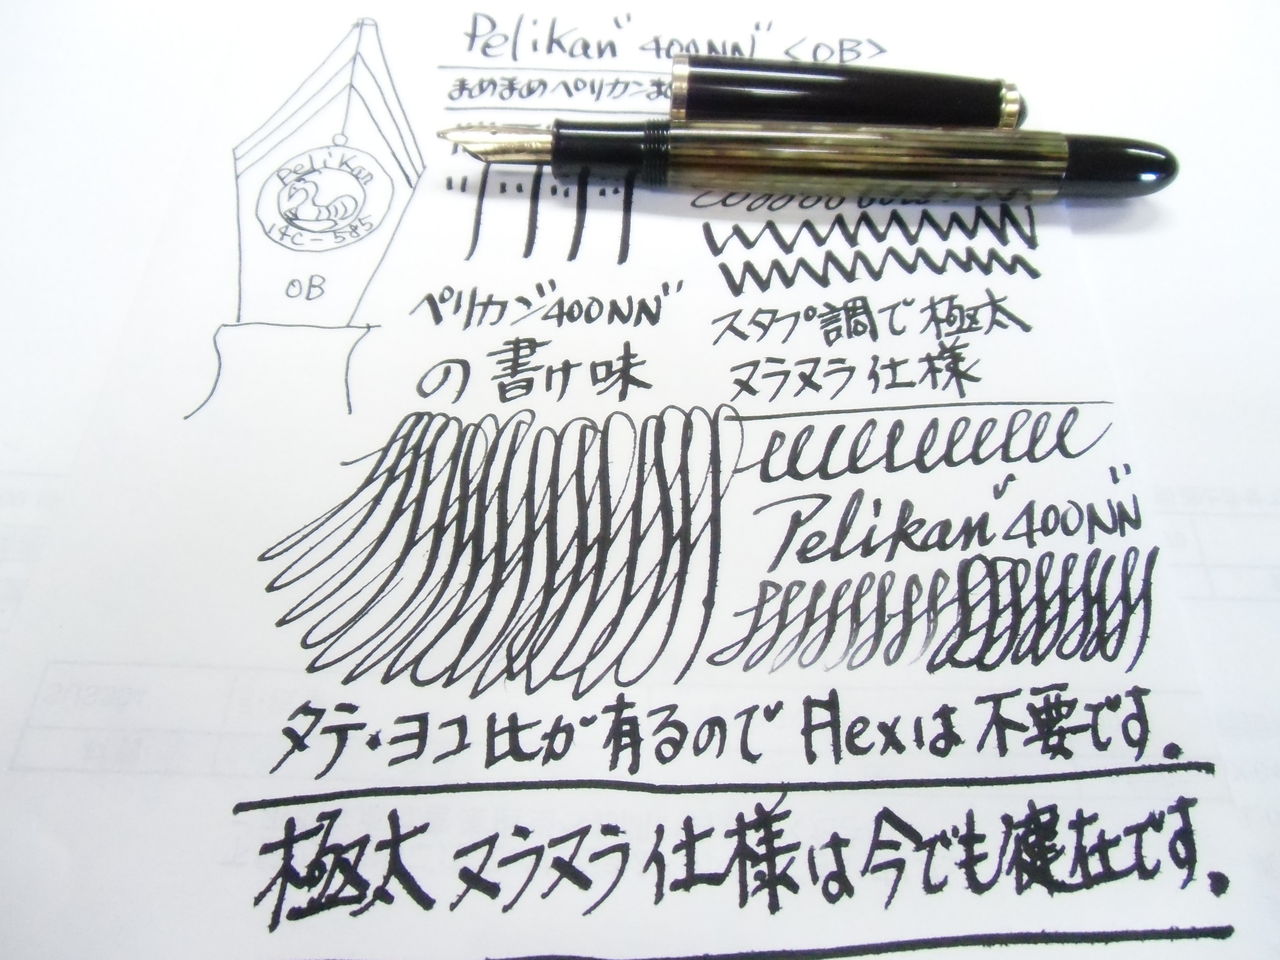 Pelikan "400NN" <OB>
まめまめペリカンま
Pelikan
14C-585
OB
ペリカン"400NN"
の書け味
スタブ調で極太
ヌラヌラ仕様
Pelikan "400NN"
タテ・ヨコ比が有るのでFlexは不要です.
極太ヌラヌラ仕様は今でも健在です.